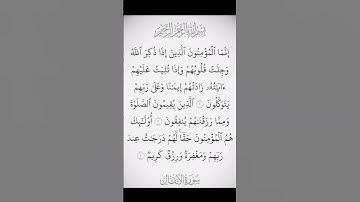 بِسْمِ ٱللَّهِ ٱلرَّحْمَٰنِ ٱلرَّحِيمِ
إِنَّمَا ٱلْمُؤْمِنُونَ ٱلَّذِينَ إِذَا ذُكِرَ ٱللَّهُ
وَجِلَتْ قُلُوبُهُمْ وَإِذَا تُلِيَتْ عَلَيْهِمْ
ءَايَٰتُهُۥ زَادَتْهُمْ إِيمَٰنًا وَعَلَىٰ رَبِّهِمْ
يَتَوَكَّلُونَ ٢ ٱلَّذِينَ يُقِيمُونَ ٱلصَّلَوٰةَ
وَمِمَّا رَزَقْنَٰهُمْ يُنفِقُونَ ٣ أُو۟لَٰٓئِكَ
هُمُ ٱلْمُؤْمِنُونَ حَقًّا لَّهُمْ دَرَجَٰتٌ عِندَ
رَبِّهِمْ وَمَغْفِرَةٌ وَرِزْقٌ كَرِيمٌ ٤
سُورَةُ ٱلْأَنْفَالِ